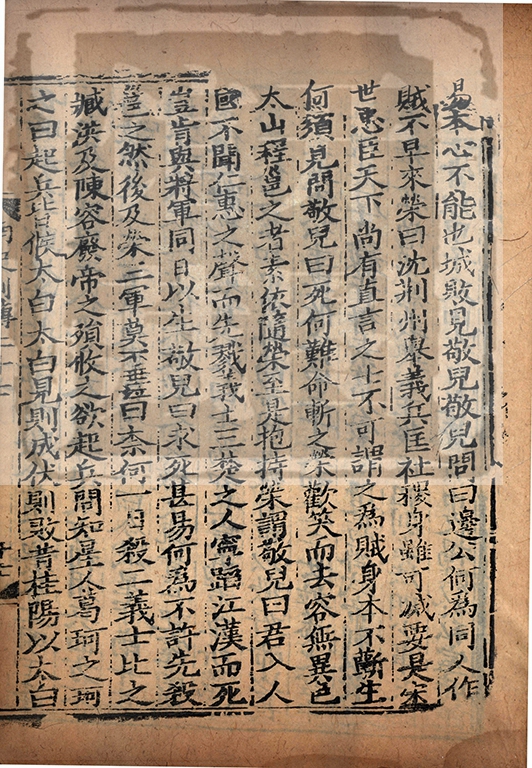 易本心不能也城敗見敬兒敬兒問曰邊公何為同人作
賊不早來榮曰沈荆州舉義兵匡社稷身雖可滅要是宋
世忠臣天下尚有直言之士不可謂之為賊身本不蘄生
何須見問敬兒曰死何難命斬之榮歡笑而去容無異色
太山程邕之者素依隨榮至是抱持榮謂敬兒曰君入人
國不聞仁惠之聲而先戮義士三楚之人寧蹈江漢而死
豈肯與將軍同日以生敬兒曰求死甚易何為不許先殺
邕之然後及榮三軍莫不垂泣曰柰何一日殺二義士比之
臧洪及陳容廢帝之殞攸之欲起兵問知星人葛珂之珂
之曰起兵皆候太白太白見則成伏則敗昔桂陽以太白